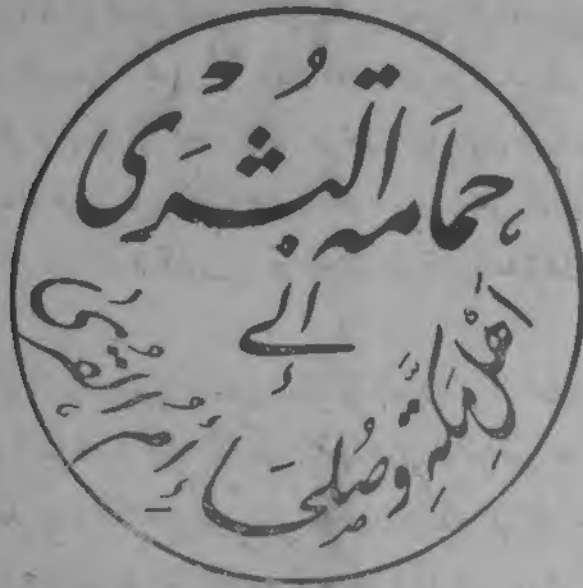 حمَامة البُشْرَى
إلے
اَهْلِ مَكَّةَ وَصُلَحَاءِ أُمِّ الْقُرٰى